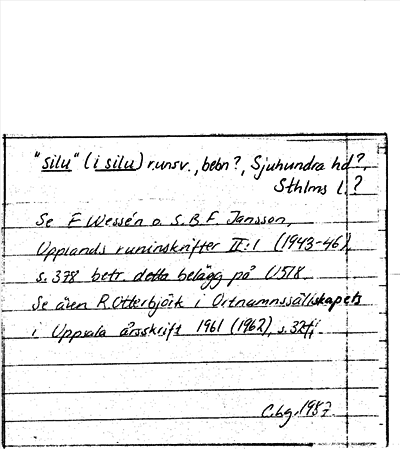 "silu" (i silu) runsv., bebn?, Sjuhundra hd?,
Sthlms l.?
Se E Wessén o. S.B.F. Jansson,
Upplands runinskrifter II:1 (1943-46),
s. 378 betr. detta belägg på U518.
Se även R. Otterbjörk i Ortnamnssällskapets
i Uppsala årsskrift 1961 (1962), s. 32ff.
C.bg. 1987.